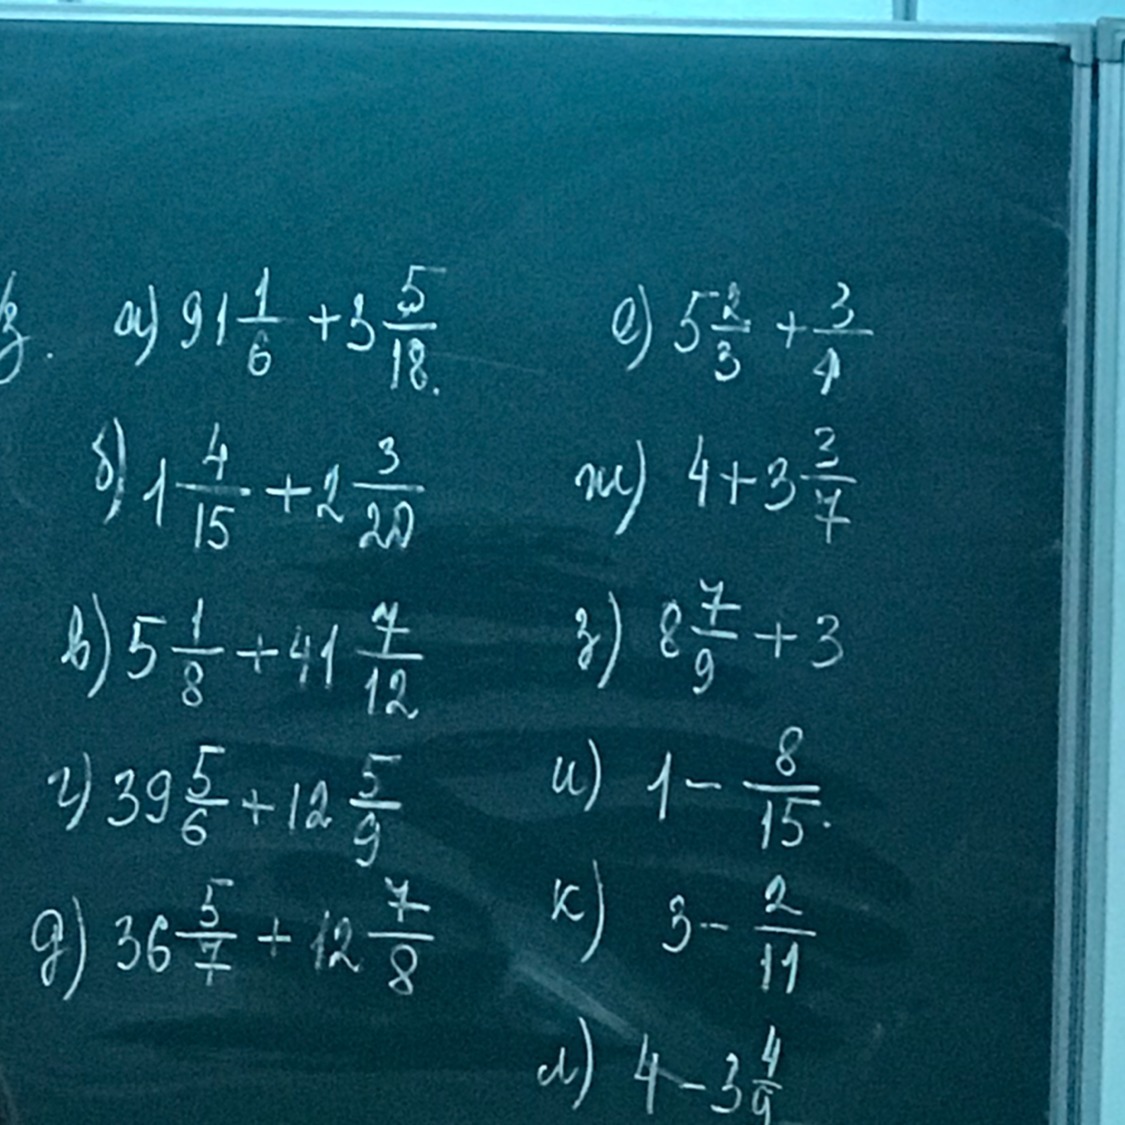 а) 91 1/6 + 3 5/18.
б) 1 4/15 + 2 3/20
в) 5 1/8 + 41 7/12
г) 39 5/6 + 12 5/9
д) 36 5/7 + 12 7/8
е) 5 2/3 + 3/4
ж) 4 + 3 3/7
з) 8 7/9 + 3
и) 1 - 8/15.
к) 3 - 2/11
л) 4 - 3 4/9